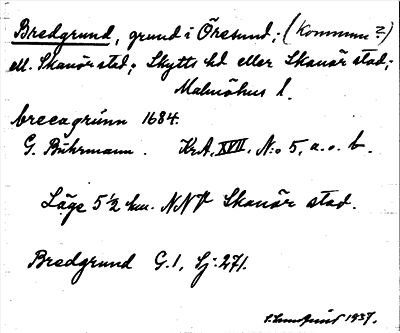 Bredgrund, grund i Öresund; (Kommun?)
ell. Skanör stad; Skytts hd eller Skanör stad;
Malmöhus l.
breeagrünn 1684.
G. Buhrmann. KrA, XVII, N:o 5, a. o. b.
Läge 5 1/2 km. NNV Skanör stad.
Bredgrund G.1, Sj:271.
1937.